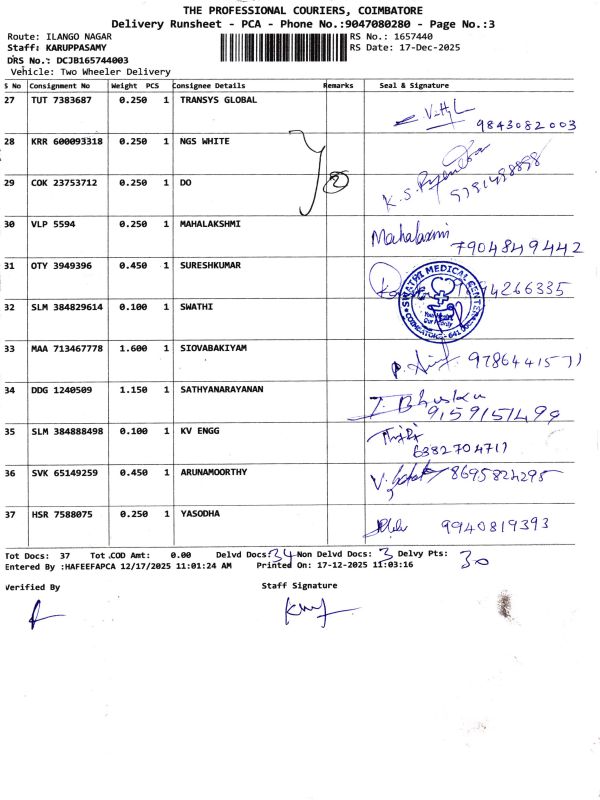 THE PROFESSIONAL COURIERS, COIMBATORE
Delivery Runsheet - PCA - Phone No.:9047080280 - Page No.:3
Route: ILANGO NAGAR RS No.: 1657440
Staff: KARUPPASAMY RS Date: 17-Dec-2025
DRS No.: DCJB165744003
Vehicle: Two Wheeler Delivery
S No Consignment No Weight PCS Consignee Details Remarks Seal & Signature
27 TUT 7383687 0.250 1 TRANSYS GLOBAL
9843082003
28 KRR 600093318 0.250 1 NGS WHITE
29 COK 23753712 0.250 1 DO 2
30 VLP 5594 0.250 1 MAHALAKSHMI Mahalaxmi
7904849442
31 OTY 3949396 0.450 1 SURESHKUMAR
SWATHI MEDICAL CENTRE
32 SLM 384829614 0.100 1 SWATHI
33 MAA 713467778 1.600 1 SIOVABAKIYAM
9786441571
34 DDG 1240509 1.150 1 SATHYANARAYANAN
9159151499
35 SLM 384888498 0.100 1 KV ENGG
6382704711
36 SVK 65149259 0.450 1 ARUNAMOORTHY 8695824295
37 HSR 7588075 0.250 1 YASODHA 9940819393
Tot Docs: 37 Tot.COD Amt: 0.00 Delvd Docs: 34 Non Delvd Docs: 3 Delvy Pts: 30
Entered By :HAFEEFAPCA 12/17/2025 11:01:24 AM Printed On: 17-12-2025 11:03:16
Verified By Staff Signature